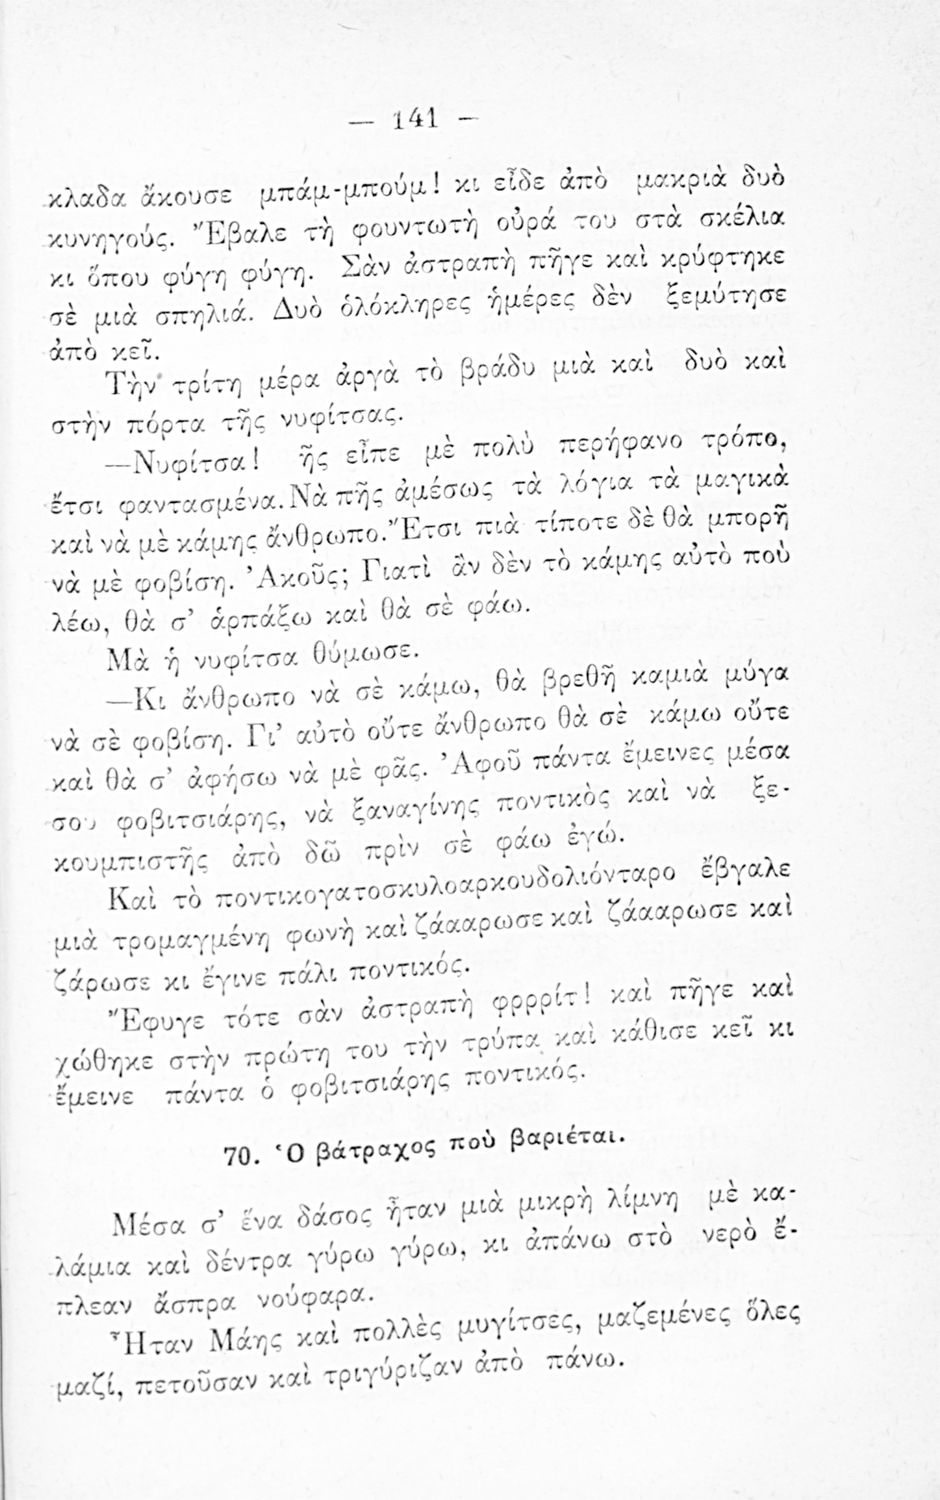 — 141 —
κλαδα ἄκουσε μπάμ-μπούμ! κι εἶδε ἀπὸ μακριὰ δυὸ
κυνηγούς. Ἔβαλε τὴ φουντωτὴ οὐρά του στὰ σκέλια
κι ὅπου φύγη φύγη. Σὰν ἀστραπὴ πῆγε καὶ κρύφτηκε
σὲ μιὰ σπηλιά. Δυὸ ὁλόκληρες ἡμέρες δὲν ξεμύτησε
ἀπὸ κεῖ.
Τὴν τρίτη μέρα ἀργὰ τὸ βράδυ μιὰ καὶ δυὸ καὶ
στὴν πόρτα τῆς νυφίτσας.
—Νυφίτσα! ῆς εἶπε μὲ πολὺ περήφανο τρόπο,
ἔτσι φαντασμένα. Νὰ πῆς ἀμέσως τὰ λόγια τὰ μαγικὰ
καὶ νὰ μὲ κάμης ἄνθρωπο. Ἔτσι πιὰ τίποτε δὲ θὰ μπορῆ
νὰ μὲ φοβίση. Ἀκοῦς; Γιατὶ ἂν δὲν τὸ κάμης αὐτὸ ποὺ
λέω, θὰ σ' ἁρπάξω καὶ θὰ σὲ φάω.
Μὰ ἡ νυφίτσα θύμωσε.
—Κι ἄνθρωπο νὰ σὲ κάμω, θὰ βρεθῆ καμιὰ μύγα
νὰ σὲ φοβίση. Γι' αὐτὸ οὔτε ἄνθρωπο θὰ σὲ κάμω οὔτε
καὶ θὰ σ' ἀφήσω νὰ μὲ φᾶς. Ἀφοῦ πάντα ἔμεινες μέσα
σου φοβιτσιάρης, νὰ ξαναγίνης ποντικὸς καὶ νὰ ξε-
κουμπιστῆς ἀπὸ δῶ πρὶν σὲ φάω ἐγώ.
Καὶ τὸ ποντικογατοσκυλοαρκουδολιόνταρο ἔβγαλε
μιὰ τρομαγμένη φωνὴ καὶ ζάααρωσε καὶ ζάααρωσε καὶ
ζάρωσε κι ἔγινε πάλι ποντικός.
Ἔφυγε τότε σὰν ἀστραπὴ φρρρίτ! καὶ πῆγε καὶ
χώθηκε στὴν πρώτη του τὴν τρύπα καὶ κάθισε κεῖ κι
ἔμεινε πάντα ὁ φοβιτσιάρης ποντικός.
70. Ὁ βάτραχος ποὺ βαριέται.
Μέσα σ' ἕνα δάσος ἦταν μιὰ μικρὴ λίμνη μὲ κα-
λάμια καὶ δέντρα γύρω γύρω, κι ἀπάνω στὸ νερὸ ἔ-
πλεαν ἄσπρα νούφαρα.
Ἦταν Μάης καὶ πολλὲς μυγίτσες, μαζεμένες ὅλες
μαζί, πετοῦσαν καὶ τριγύριζαν ἀπὸ πάνω.